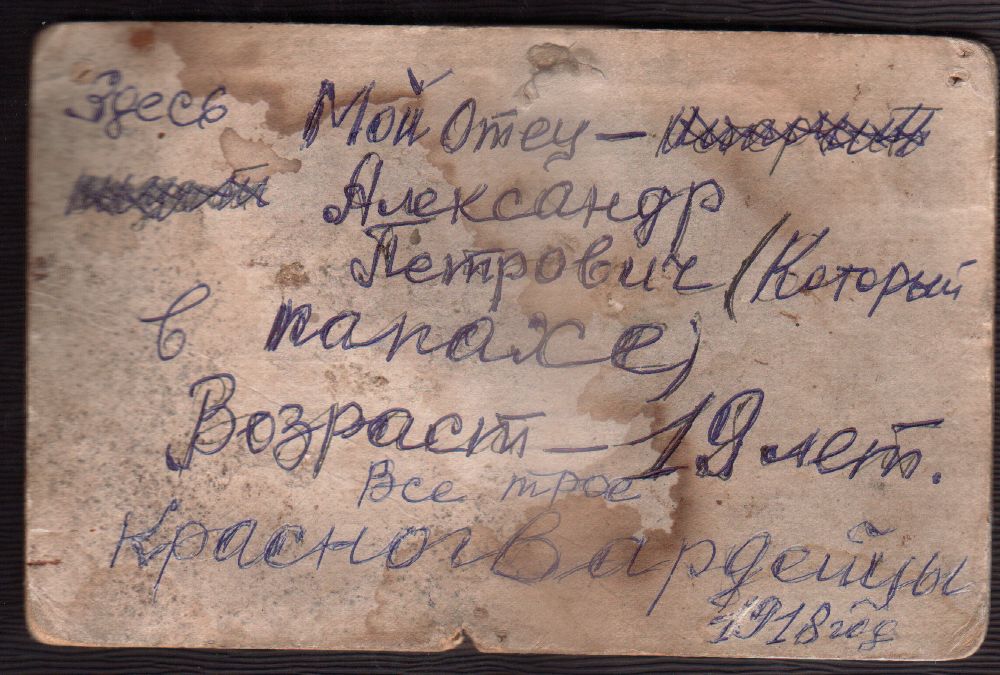 Здесь Мой Отец –
Александр
Петрович (Который
в папахе)
Возраст – 19 лет.
Все трое
Красногвардейцы
1918 год